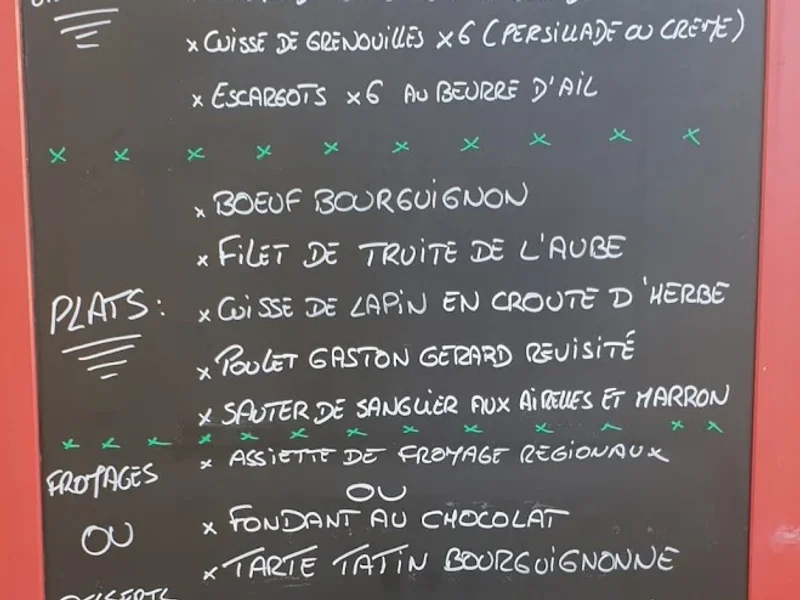 × CUISSE DE GRENOUILLES ×6 (PERSILLADE OU CREME)
× ESCARGOTS ×6 AU BEURRE D'AIL
× BOEUF BOURGUIGNON
× FILET DE TRUITE DE L'AUBE
PLATS:
× CUISSE DE LAPIN EN CROUTE D'HERBE
× POULET GASTON GERARD REVISITÉ
× SAUTER DE SANGLIER AUX AIRELLES ET MARRON
FROMAGES
× ASSIETTE DE FROMAGE REGIONAUX
OU
OU
× FONDANT AU CHOCOLAT
× TARTE TATIN BOURGUIGNONNE
DESSERTS